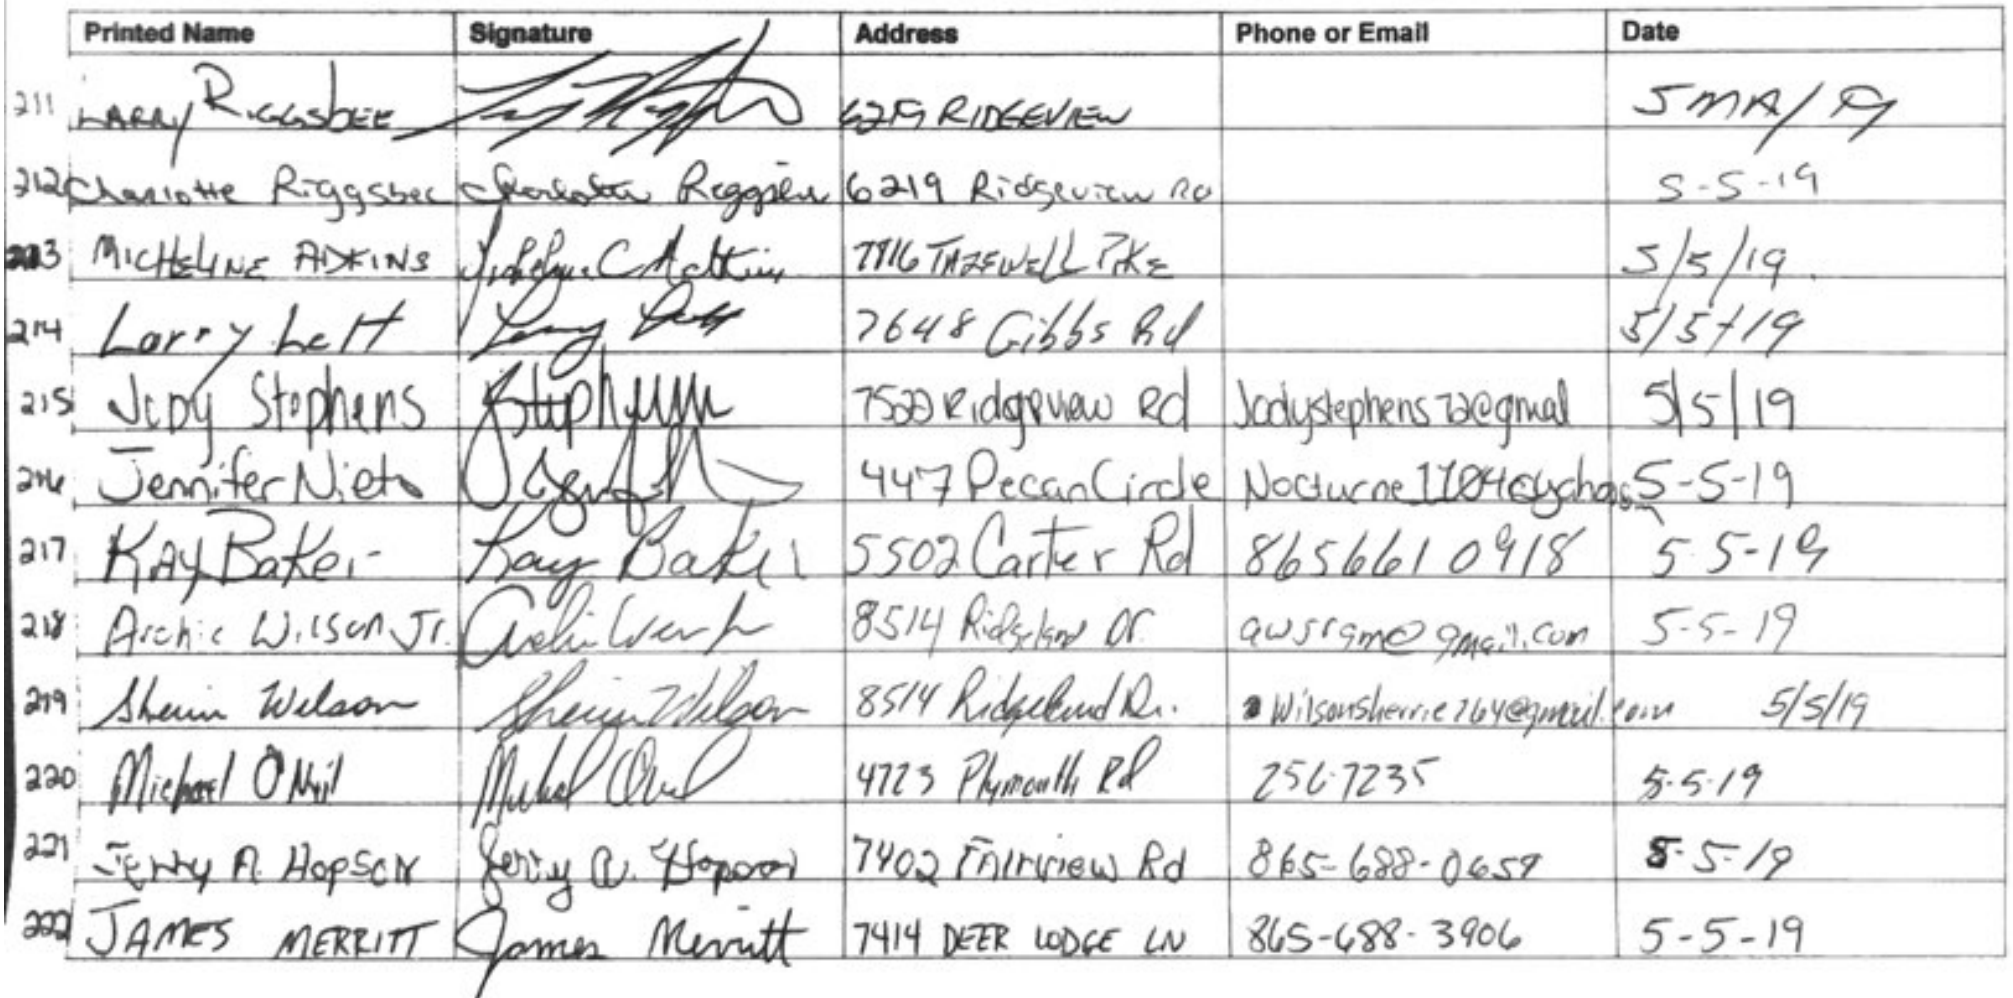 Printed Name Signature Address Phone or Email Date
211 LARRY RIGGSBEE 6219 RIDGEVIEW 5 MAY 19
212 Charlotte Riggsbee Charlotte Riggsbee 6219 Ridgeview RD 5-5-19
213 MICHELINE ADKINS 7816 TAZEWELL PIKE 5/5/19
214 Larry Lett Larry Lett 7648 Gibbs Rd 5/5/19
215 Jody Stephens 7523 Ridgeview Rd Jodystephens72@gmail 5/5/19
216 Jennifer Nieto 447 Pecan Circle 5-5-19
217 KAY Baker Kay Baker 5502 Carter Rd 8656610918 5-5-19
218 Archie Wilson Jr. 8514 Ridgeland Dr. awsrgm@gmail.com 5-5-19
219 Sherrie Wilson Sherrie Wilson 8514 Ridgeland Dr. Wilsonsherrie764@gmail.com 5/5/19
220 Michael O'Neil Michael O'Neil 4723 Plymouth Rd 256-7235 5-5-19
221 Jerry A. Hopson Jerry A. Hopson 7402 Fairview Rd 865-688-0659 5-5-19
222 JAMES MERRITT James Merritt 7414 DEER LODGE LN 865-688-3906 5-5-19